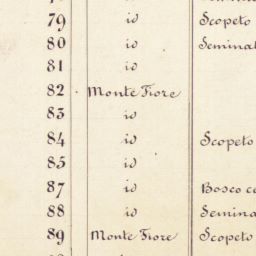 79 id Scopeto
80 id Semina
81 id
82 Monte Fiore
83 id
84 id Scopeto
85 id
87 id Bosco ce
88 id Semina
89 Monte Fiore Scopeto